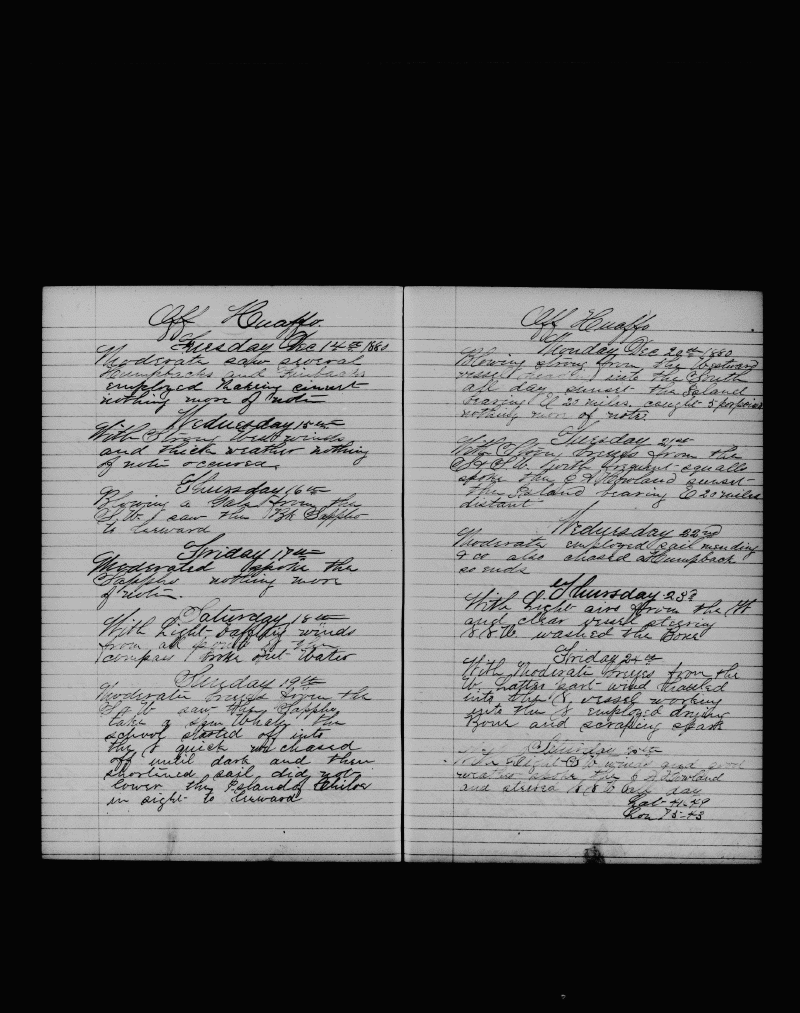 Off Huaffo.
Tuesday Dec 14th 1880
Moderate saw several
Humpbacks and Finbacks
employed
nothing more of note
Wednesday 15th
With Strong West winds
and thick weather nothing
of note occurred.
Thursday 16th
Blowing a Gale from the
S.W. saw the Sappho
to Leeward
Friday 17th
Moderated spoke the
Sappho nothing more
of note.
Saturday 18th
With Light baffling winds
from all points of the
compass broke out water
Sunday 19th
Moderate breezes from the
S&W saw the Sappho
take a sperm whale the
school started off into
the quick we chased
off until dark and then
shortened sail did not
lower the Island of Chiloe
in sight to Leeward
Off Huaffo
Monday Dec 20th 1880
Blowing strong from the Westward
vessel into the South
all day sunset the Island
bearing E 20 miles. caught 5 porpoises
nothing more of note.
Tuesday 21st
With Strong breezes from the
with frequent squalls
spoke the Howland sunset
the Island bearing E 20 miles
distant
Wednesday 22nd
Moderate employed sail mending
& co also chased a Humpback
so ends
Thursday 23d
With Light airs from the
and clear vessel steering
washed the Bone
Friday 24th
With Moderate breezes from the
W. Latter part wind hauled
into the vessel working
into the employed drying
Bone and scraping
Saturday 25th
With Light winds and good
weather spoke the Howland
and steered all day
Lat 41-49
Lon 75-43